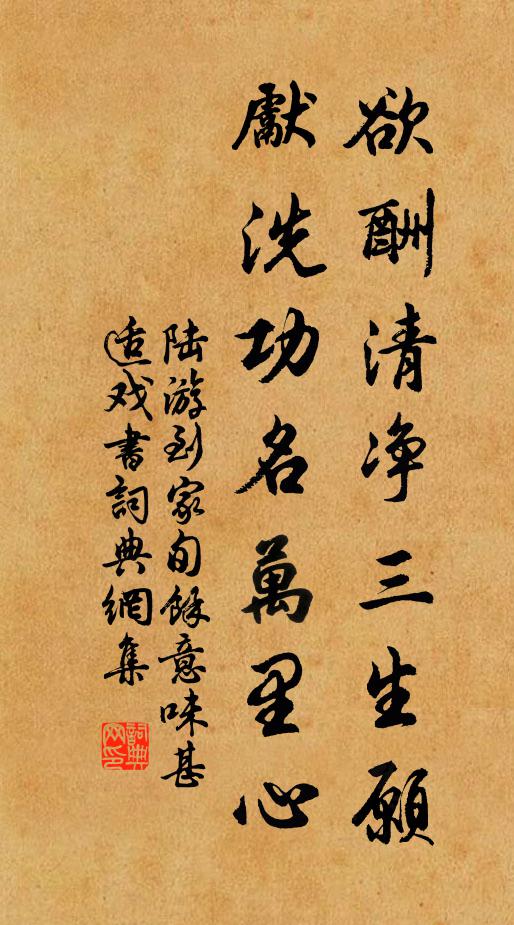 欲酬清净三生願
獻洗功名萬里心
陆游到家旬餘意味甚
适戏書詞典網集
詞典网印